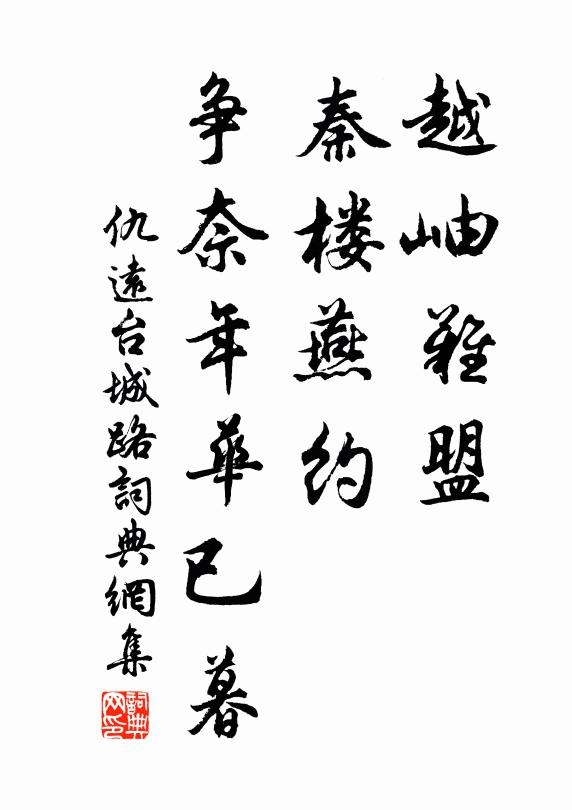 越岫難盟
秦楼燕约
争奈年華已暮
仇遠台城路詞典網集
詞典網印